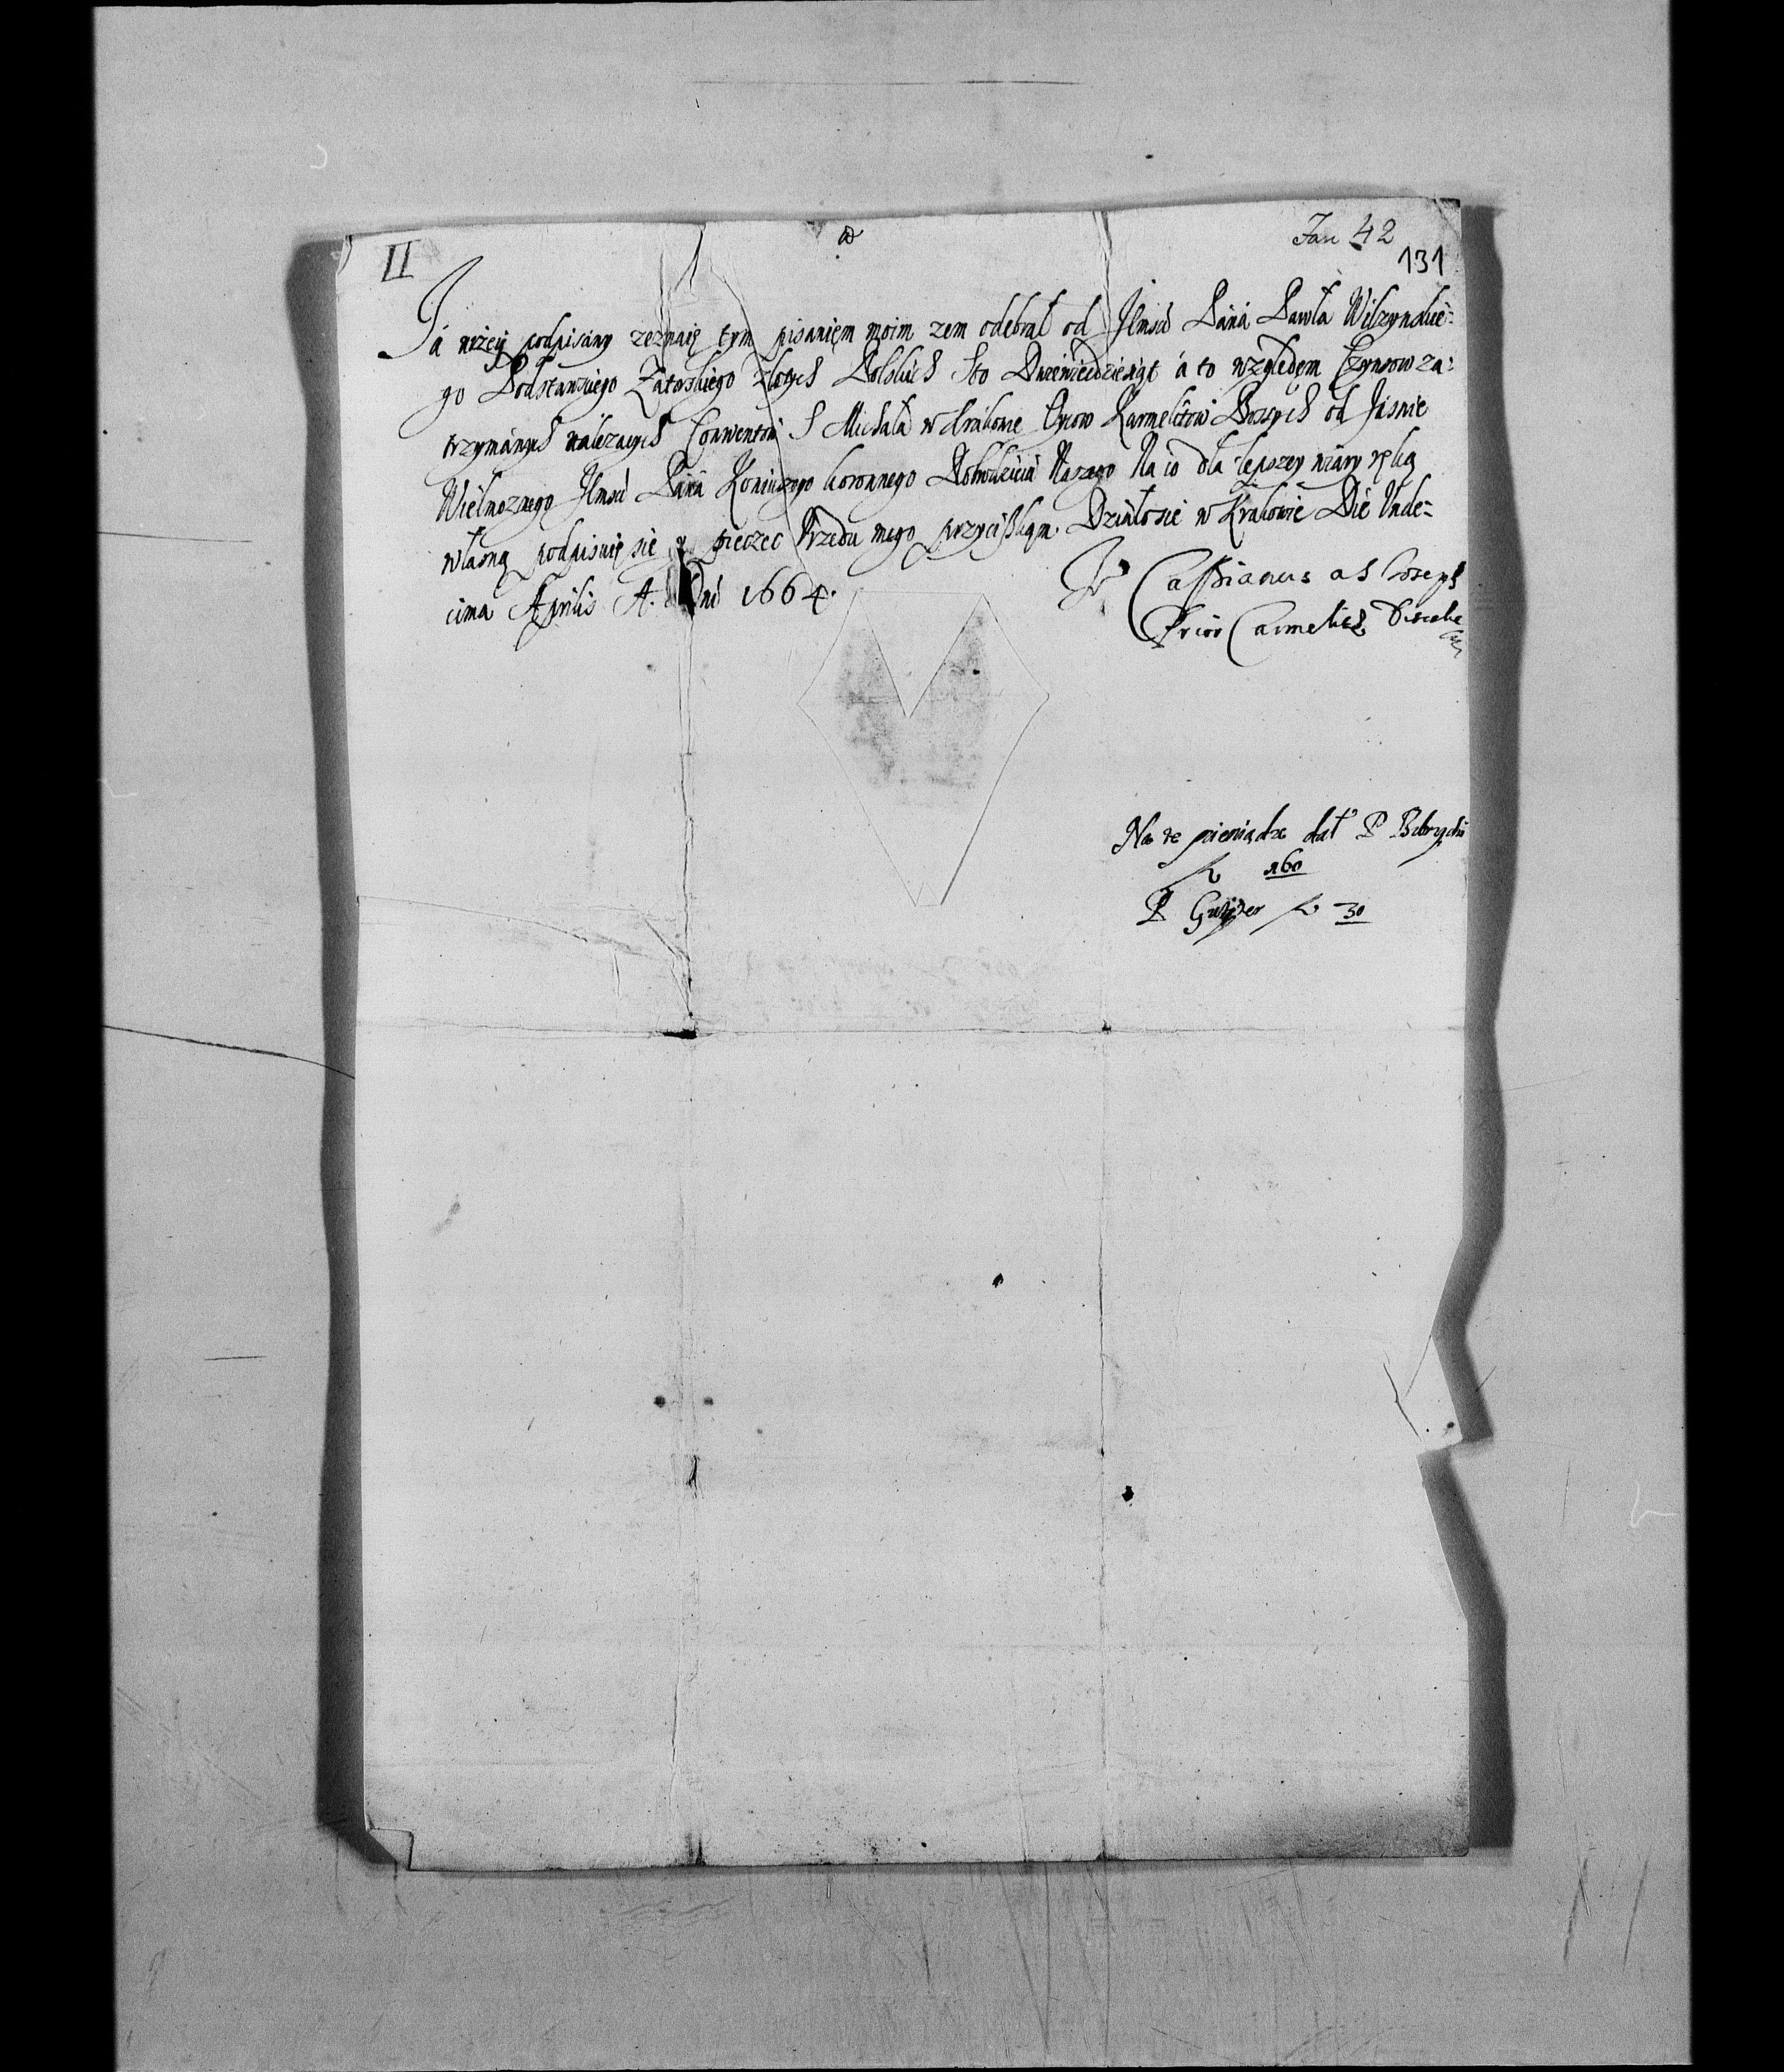 II
Jan 42
131
Ja niżey podpisany zeznaię tym pisanięm moim zem odebrał od Jlmsci Páná Páwła Wilczynskie=
go Podstarosciego Zatorskiego złotych Polskich Sto Dziewiedziesiąt á to względem Czynszow za=
trzymánych należacych Conwentowi S Micháłá w Krakowie Oycow Karmelitow Bossych od Jásnie
Wielmoznego Jlmsci Páná Koniuszego koronnego Dobrodzieiá Naszego Na co dla lepszey wiary ręką
własną podpisuię się y pieczec Vrzedu mego przyciskąm Działo sie w Krakowie Die Vnde=
cima Aprilis A. Dni 1664.
Fr Cassianus a S Joseph
Prior Carmelit Discalc
Na te pieniądze dał P Bobrycki
fl 160
P fl 30